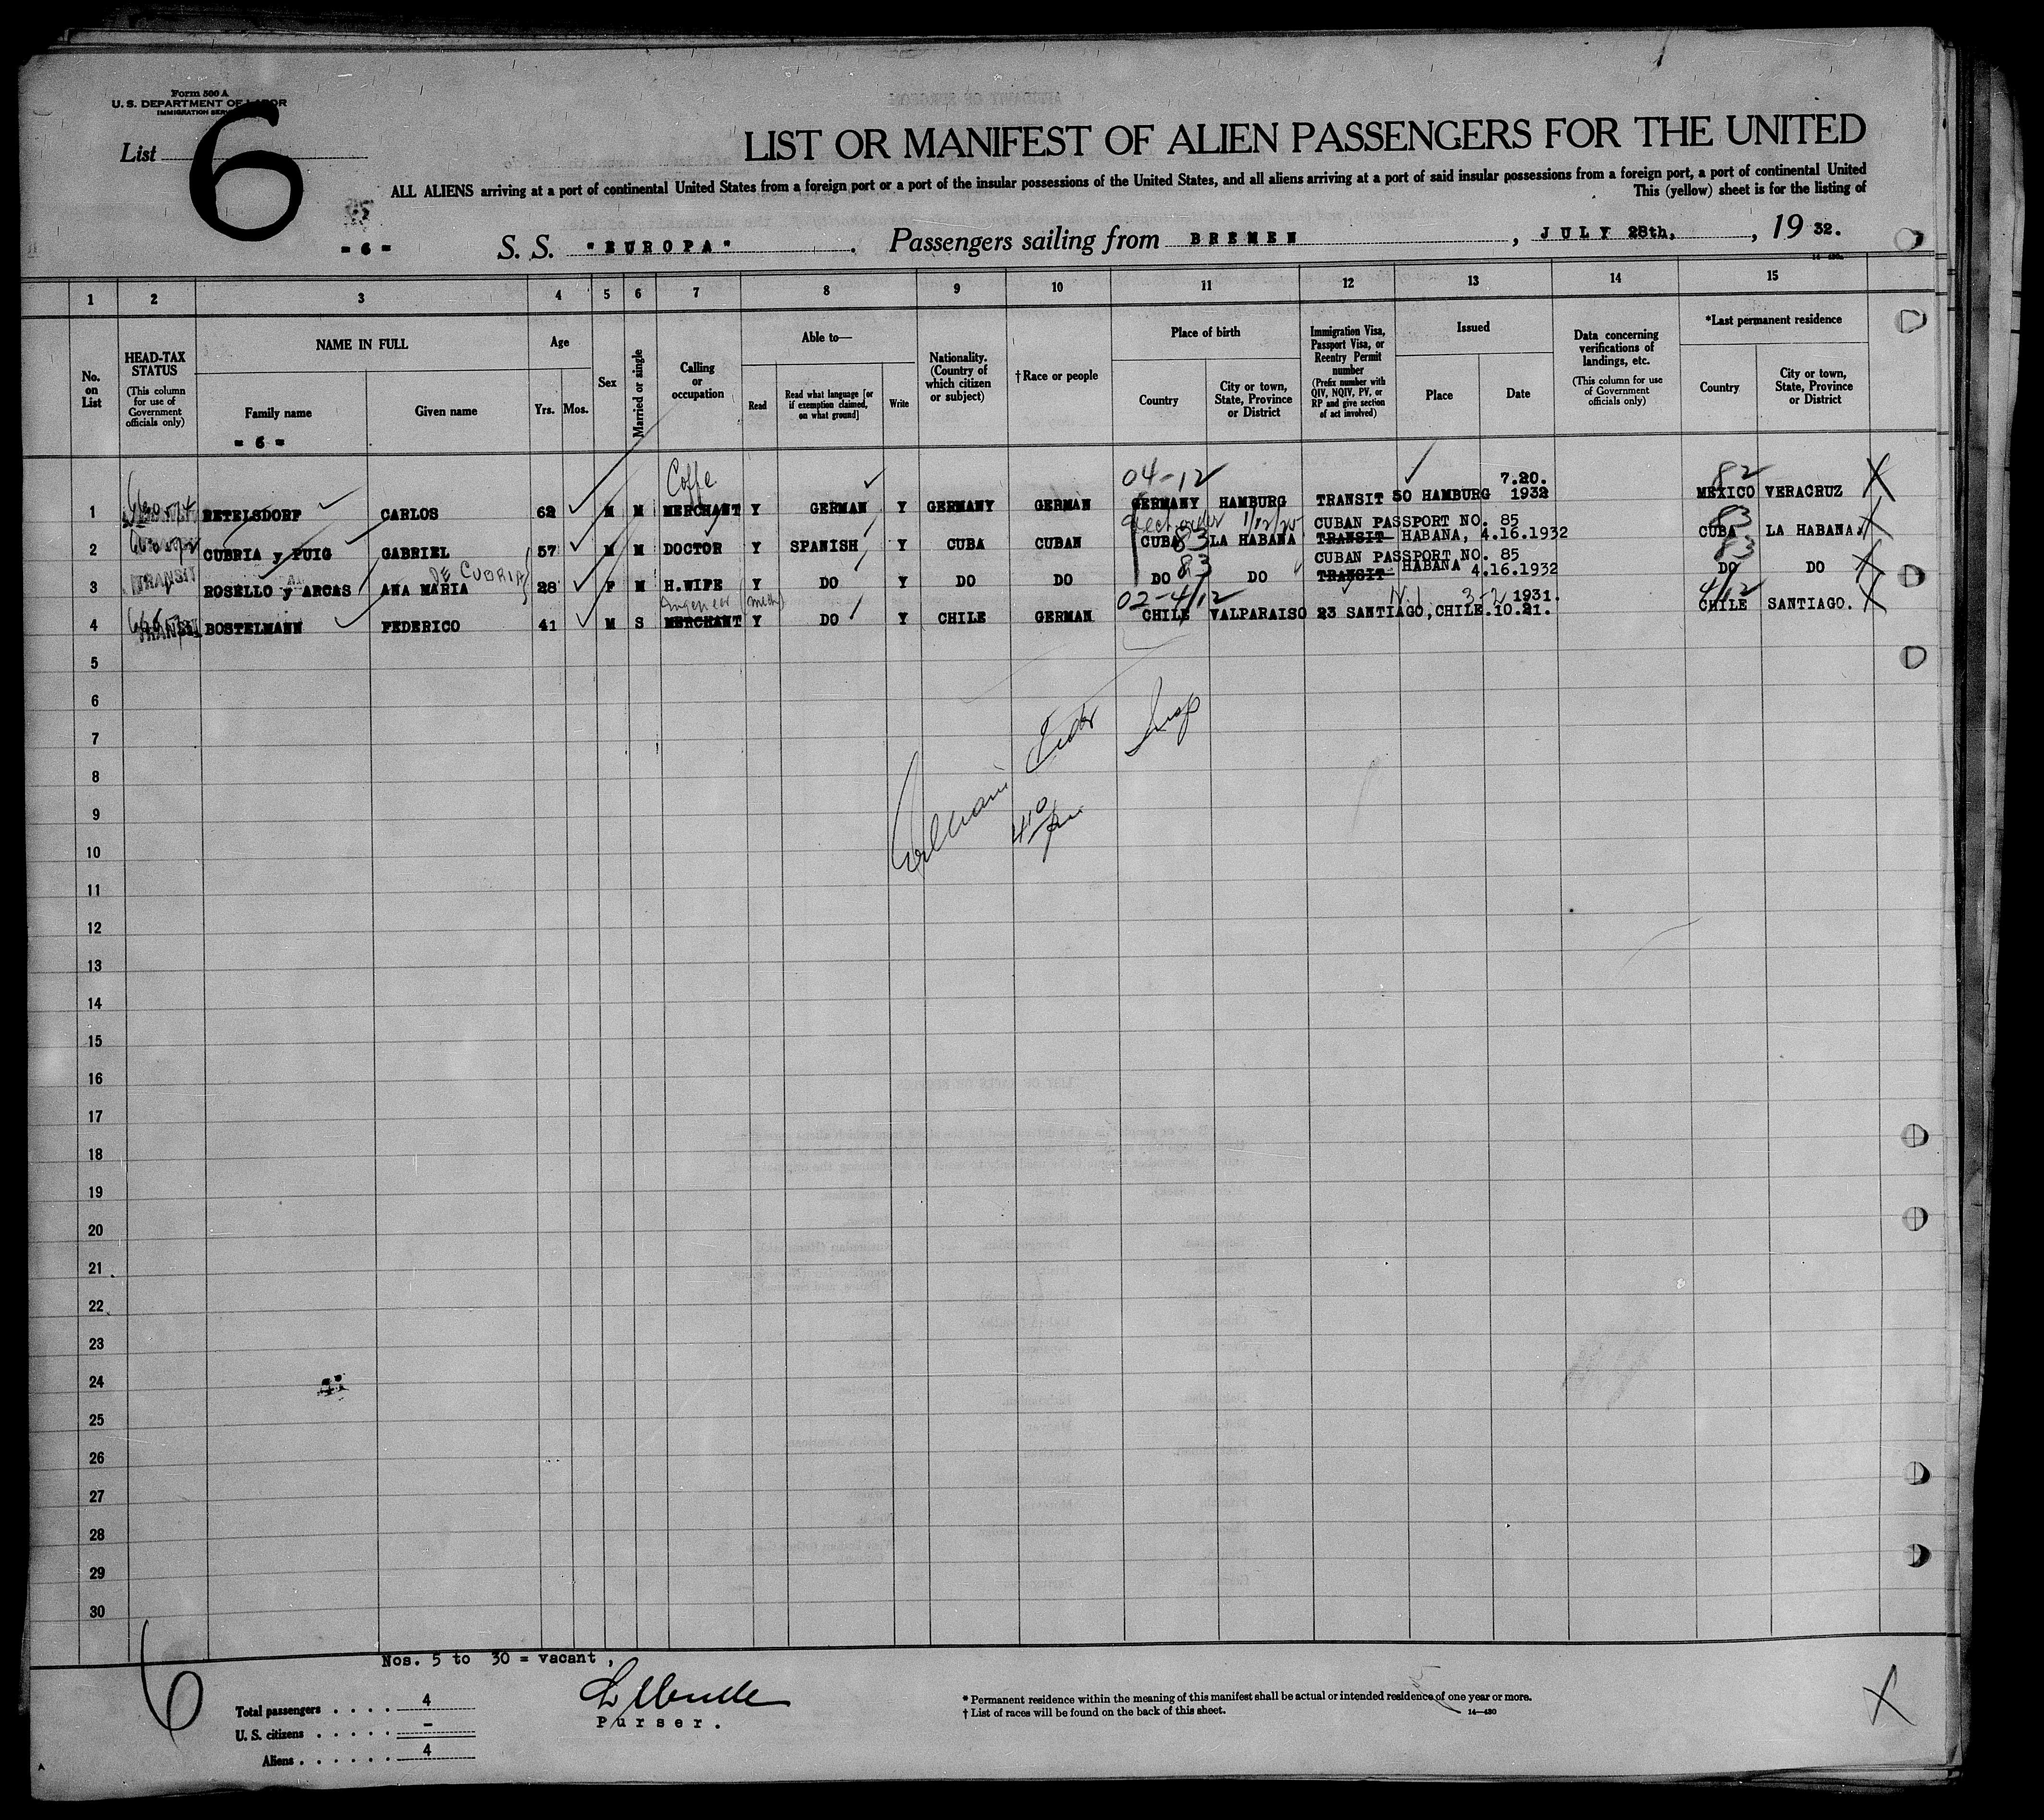 Form 500 A
U. S. DEPARTMENT OF LABOR
IMMIGRATION SERVICE
List 6
LIST OR MANIFEST OF ALIEN PASSENGERS FOR THE UNITED
ALL ALIENS arriving at a port of continental United States from a foreign port or a port of the insular possessions of the United States, and all aliens arriving at a port of said insular possessions from a foreign port, a port of continental United
This (yellow) sheet is for the listing of
- 6 - S. S. "EUROPA". Passengers sailing from BREMEN, JULY 28th, 19 32.
1 2 3 4 5 6 7 8 9 10 11 12 13 14 15
No. on List
HEAD-TAX STATUS
(This column for use of Government officials only)
NAME IN FULL
Family name
Given name
- 6 -
Age
Yrs. Mos.
Sex
Married or single
Calling or occupation
Able to—
Read
Read what language [or if exemption claimed, on what ground]
Write
Nationality. (Country of which citizen or subject)
† Race or people
Place of birth
Country
City or town, State, Province or District
Immigration Visa, Passport Visa, or Reentry Permit number
(Prefix number with QIV, NQIV, PV, or RP and give section of act involved)
Issued
Place
Date
Data concerning verifications of landings, etc.
(This column for use of Government officials only)
*Last permanent residence
Country
City or town, State, Province or District
Coffe 04-12 7.20. 82
1 RETELSDORF CARLOS 62 M M MERCHANT Y GERMAN Y GERMANY GERMAN GERMANY HAMBURG TRANSIT 50 HAMBURG 1932 MEXICO VERACRUZ
CUBAN PASSPORT NO. 85 83
2 CUBRIA y PUIG GABRIEL 57 M M DOCTOR Y SPANISH Y CUBA CUBAN CUBA 83 LA HABANA TRANSIT HABANA, 4.16.1932 CUBA LA HABANA.
CUBAN PASSPORT NO. 85 83
3 TRANSIT ROSELLO y ARCAS ANA MARIA DE CUBRIA 28 F M H.WIFE Y DO Y DO DO DO 83 DO TRANSIT HABANA 4.16.1932 DO DO
02-4/12 3-2 1931. 4/12
4 TRANSIT BOSTELMANN FEDERICO 41 M S MERCHANT Y DO Y CHILE GERMAN CHILE VALPARAISO 23 SANTIAGO, CHILE. 10.21. CHILE SANTIAGO.
5
6
7
8
9
10
11
12
13
14
15
16
17
18
19
20
21
22
23
24
25
26
27
28
29
30
Nos. 5 to 30 = vacant,
6
Total passengers . . . . 4
U. S. citizens . . . . . -
Aliens . . . . . . 4
Purser.
* Permanent residence within the meaning of this manifest shall be actual or intended residence of one year or more.
† List of races will be found on the back of this sheet.
14—430